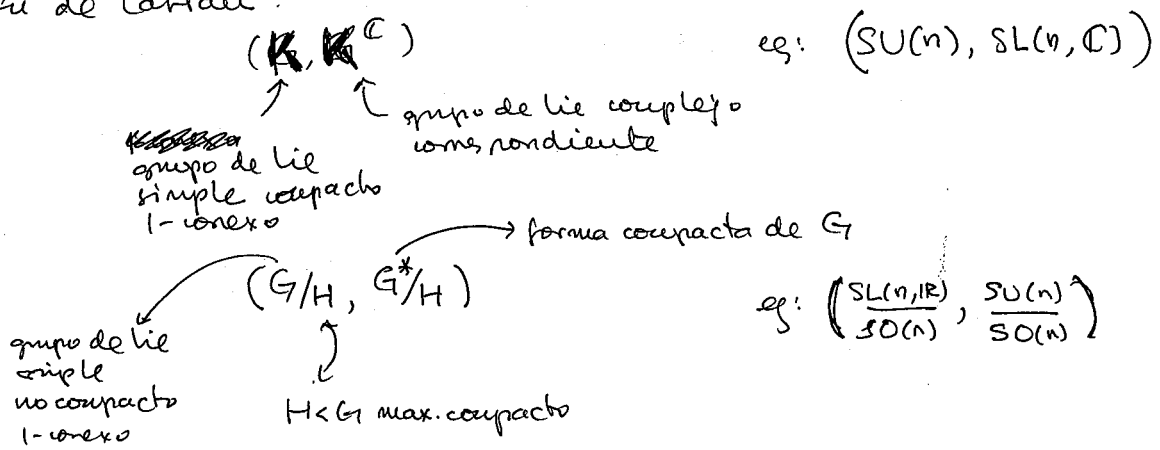 de Cartan.
(K, K^ℂ)
eg: (SU(n), SL(n, ℂ))
grupo de lie complejo
correspondiente
grupo de lie
simple compacto
1-conexo
forma compacta de G
(G/H, G*/H)
eg: (SL(n,ℝ)/SO(n), SU(n)/SO(n))
grupo de lie
simple
no compacto
1-conexo
H<G max. compacto